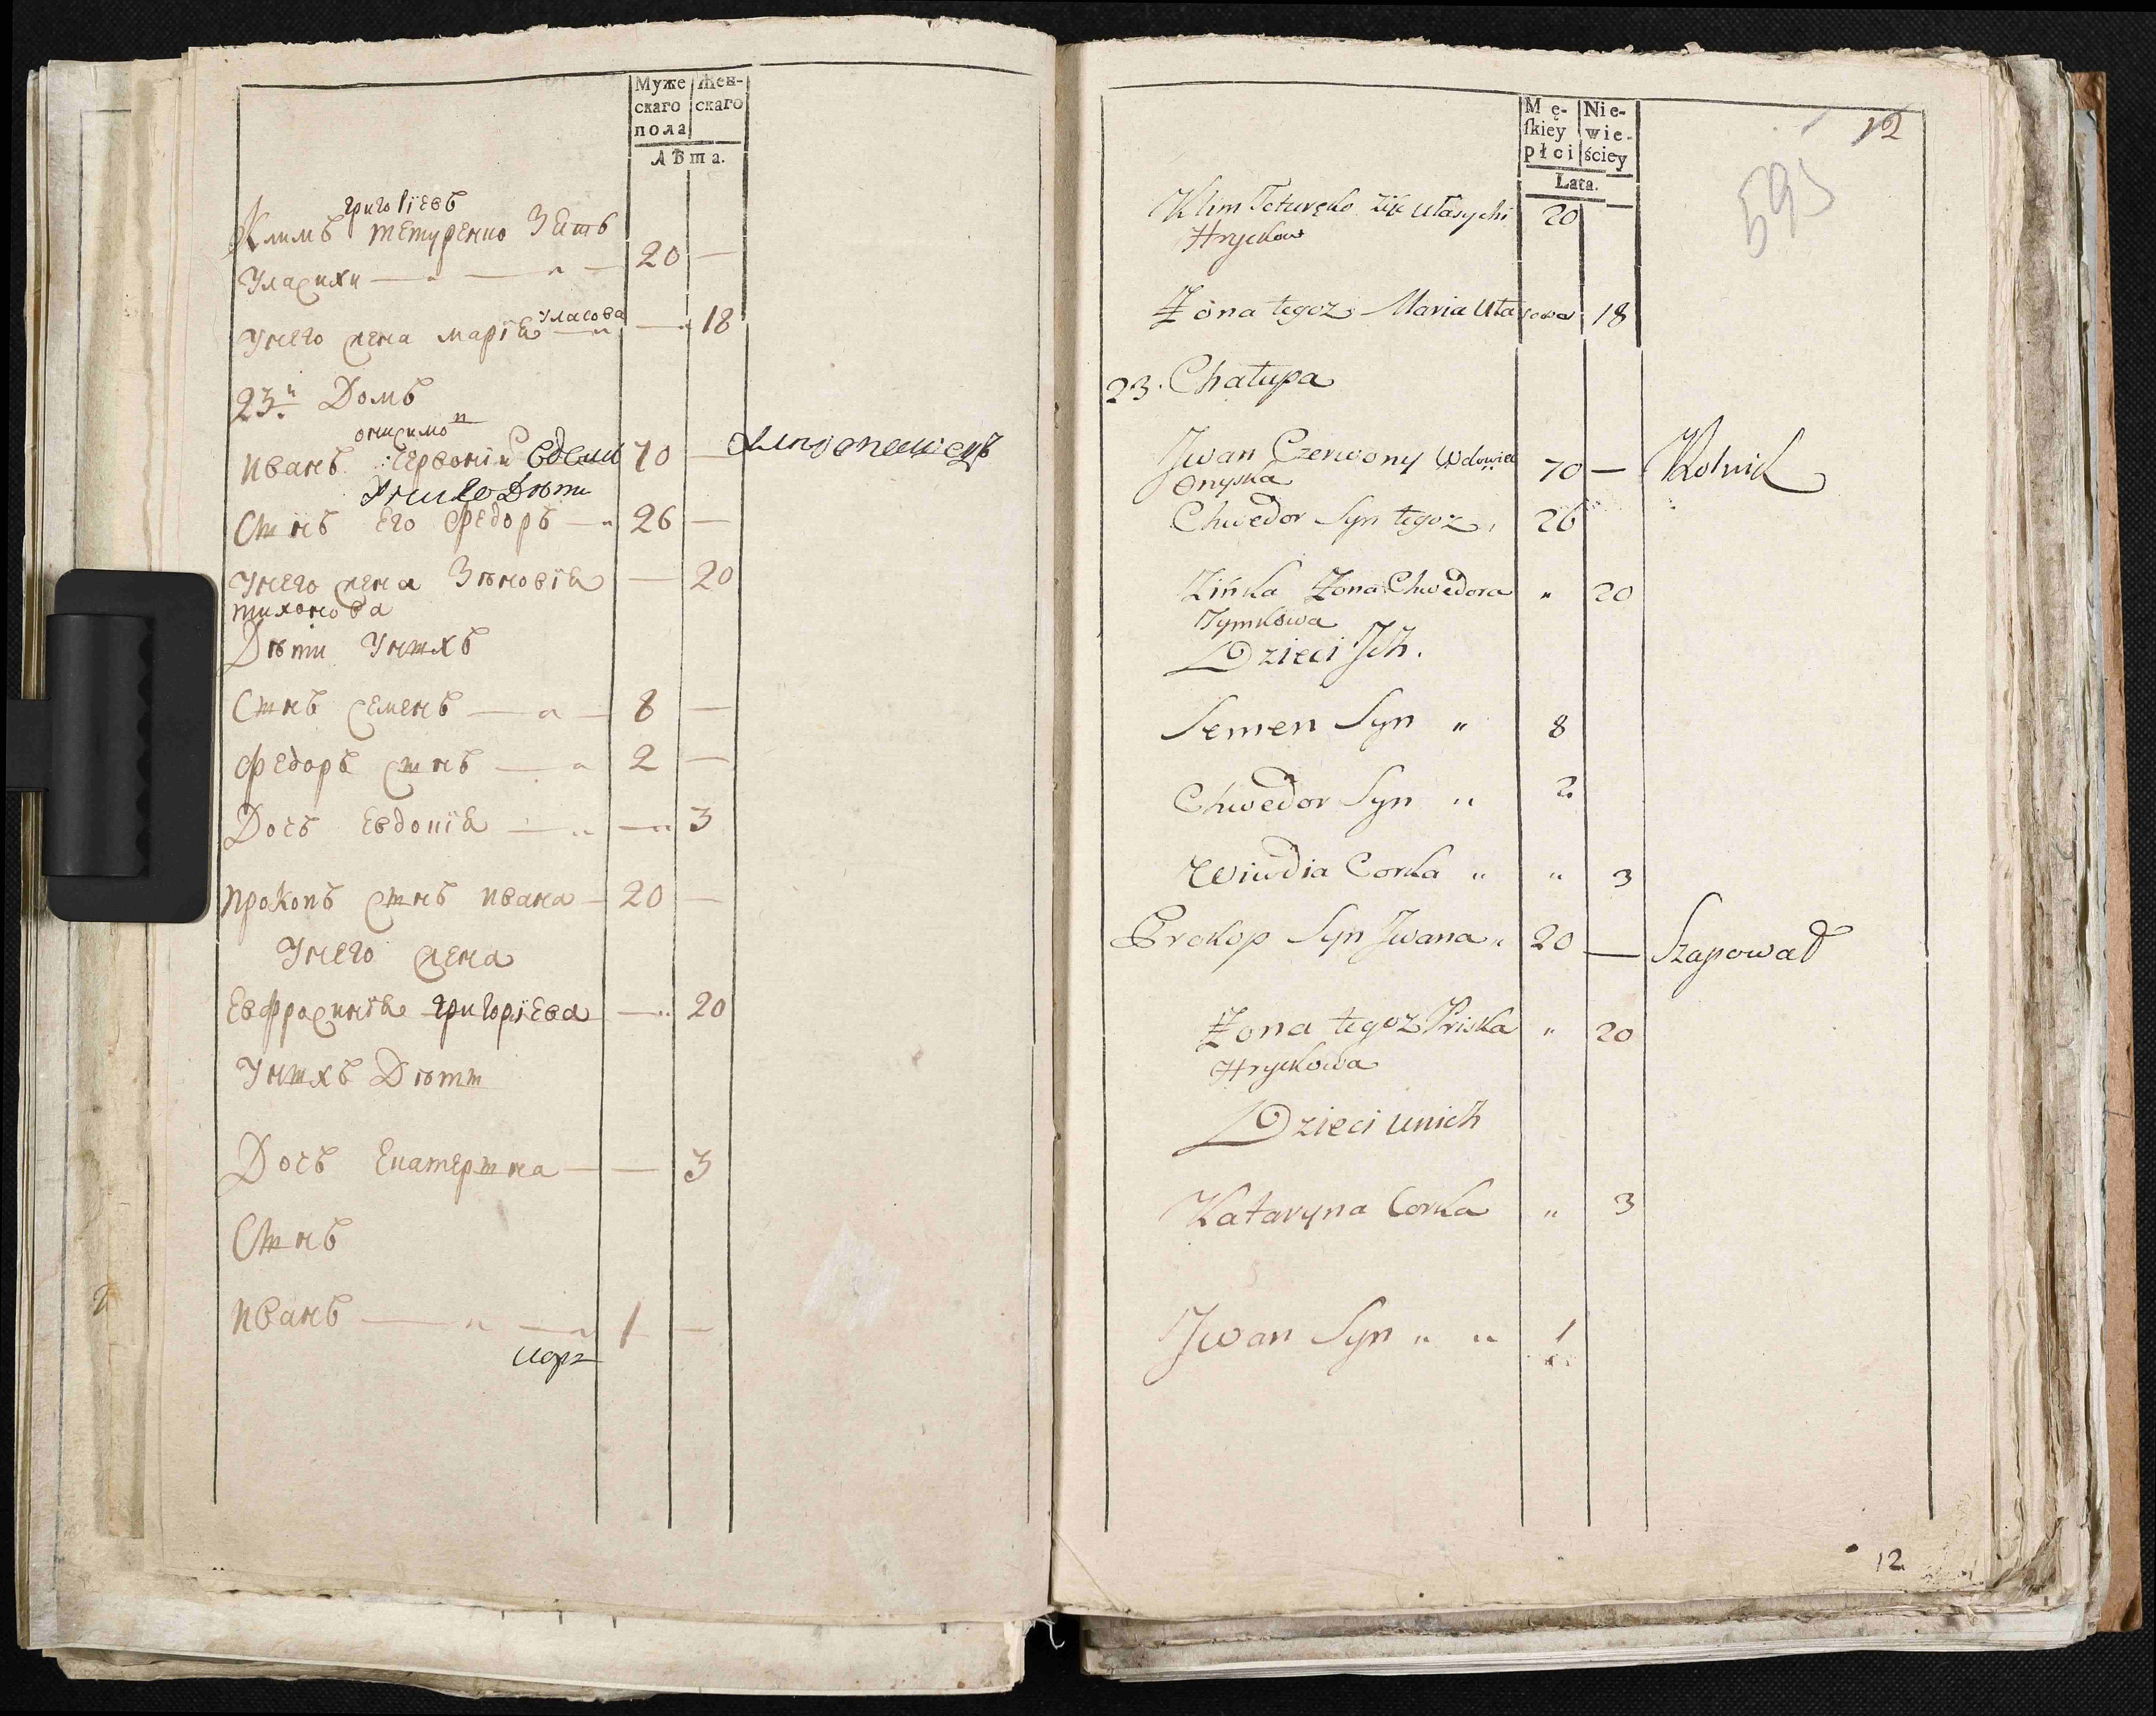 Муже
скаго
пола
Жен-
скаго
Лѣта.
григоріевъ
Климъ тетуренко Зять
Уласихи 20
Уласова
Унего жена марія 18
23й Домъ
онисимо
иванъ Червоній вдовец 70
У него Дѣти
Сынъ его федоръ 26
Унего жена Зѣновія 20
тихонова
Дѣти Унихъ
Сынъ семенъ 8
федоръ сынъ 2
Дочъ евдокія 3
прокопъ сынъ ивана 20
Унего жена
Евфросинія григоріева 20
Унихъ Дѣти
Дочъ Екатерына 3
Сынъ
иванъ 1
Mę-
ſkiey
płci
Nie-
wie-
ściey
Lata.
12
595
Klim Teturęko Zię Ułasychi 20
Hryckow
Żona tegoż Maria Ułasowa 18
23. Chałupa
Jwan Czerwony Wdowiec 70 — Rolnik
Onyska
Chwedor Syn tegoż 26
Zińka Żona Chwedora " 20
Tymkowa
Dzieci Jch.
Semen Syn " 8
Chwedor Syn " 2
Wiwdia Corka " " 3
Prokop Syn Jwana " 20 — Szapował
Żona tegoż Priska " 20
Hryckowa
Dzieci unich
Kataryna Corka " 3
Jwan Syn " " 1
12